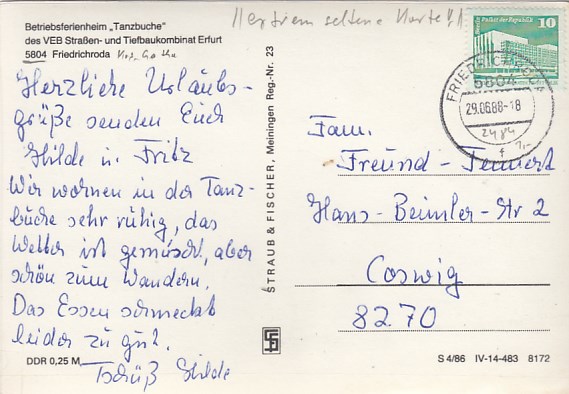 Betriebsferienheim „Tanzbuche"
des VEB Straßen- und Tiefbaukombinat Erfurt
5804 Friedrichroda Krs. Gotha
Herzliche Urlaubs-
grüße senden Euch
Hilde u. Fritz
Wir wohnen in der Tanz-
buche sehr ruhig, das
Wetter ist gemischt, aber
schön zum Wandern.
Das Essen schmeckt
leider zu gut.
Tschüß Hilde
DDR 0,25 M
STRAUB & FISCHER, Meiningen Reg.-Nr. 23
seltene Karte!!
Palast der Republik
10
FRIEDRICHRODA
5804
29.06.88-18
f
Fam.
Freund-
Hans-Beimler-Str 2
Coswig
8270
S 4/86 IV-14-483 8172